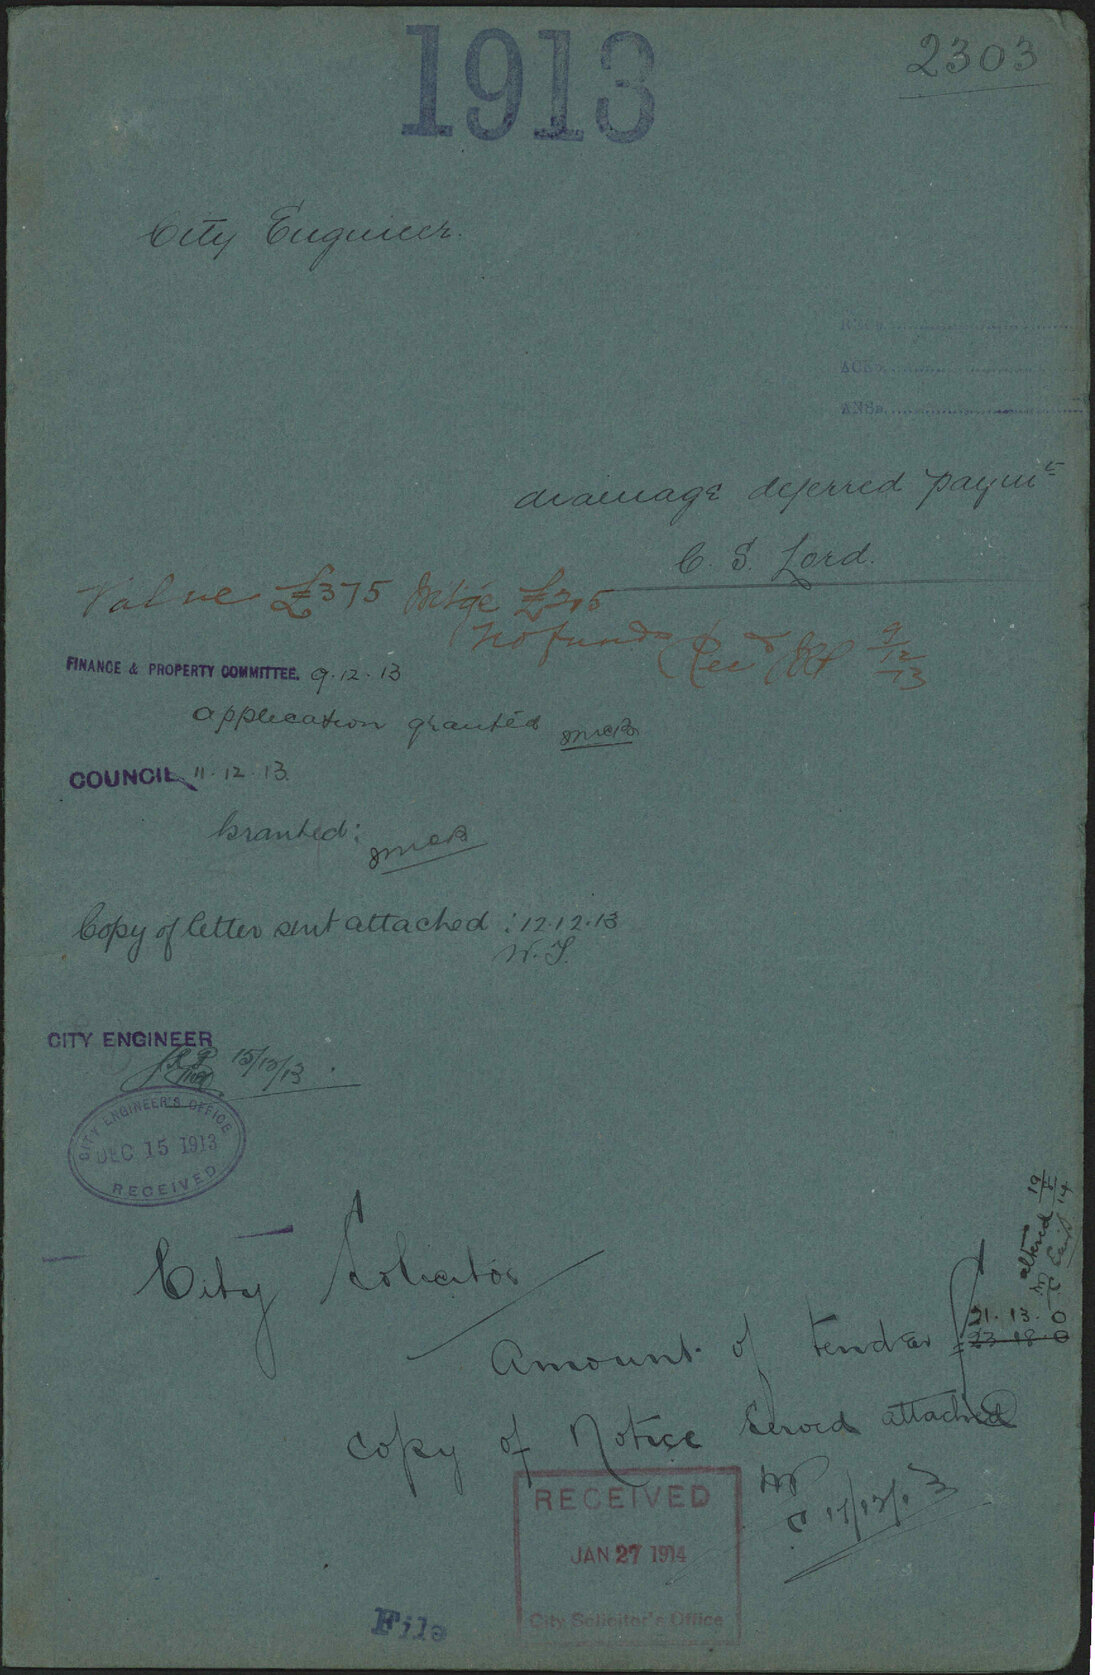 1913
2303
City Engineer.
REC
ACK
ANS
drainage deferred paymts
C. S. Lord.
Value £375 Mtge £205
No funds Recd 9/12/13
FINANCE & PROPERTY COMMITTEE. 9.12.13
application granted
COUNCIL 11.12.13.
Granted:
Copy of letter sent attached: 12.12.13
W.S.
CITY ENGINEER
15/12/13.
CITY ENGINEER'S OFFICE
DEC 15 1913
RECEIVED
City Solicitor
altered 19/5/14
21. 13. 0
Amount of tender £ 23 18 0
copy of Notice Served attached
17/12/13
RECEIVED
JAN 27 1914
City Solicitor's Office
File